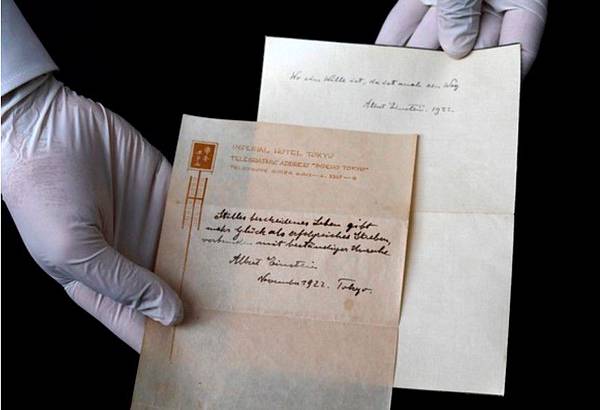 Wo ein Wille ist, da ist auch ein Weg
Albert Einstein. 1922.
IMPERIAL HOTEL TOKYO
TELEGRAPHIC ADDRESS "IMPEHO TOKYO"
Stilles bescheidenes Leben gibt
mehr Glück als erfolgreiches Streben,
verbunden mit beständiger Unruhe
Albert Einstein
November 1922. Tokyo.